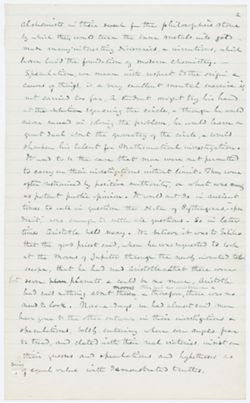 alchemists in their search for the philosophers stone
by which they would turn the baser metals into gold
made many interesting discoveries & inventions, which
have laid the foundation of modern chemistry. —
Speculation, we mean with respect to the origin &
causes of things, is a very excellent mental exercise if
not carried too far. A student might try his hand
at the solution squaring the circle, & though he would
never succeed in solving the problem, he would learn a
great deal about the geometry of the circle, & would
sharpen his talent for Mathematical investigations.
It used to be the case that men were not permitted
to carry on their investigations without limit. They were
often restrained by positive authority, or what was more
as potent public opinion. It would not do in ancient
times to call in question the
was enough to settle all questions. So in later
times Aristotle held sway. We believe it was to Galileo
that the good priest said, when he was requested to look
at the Moons of Jupiter through the newly invented tele-
scope, that he had read Aristotle
but seven planets & could be no more, Aristotle
had said nothing about moons & therefore, there was no
need to look. Now a days we had almost said men
have gone to the other extreme in their investigations &
speculations, boldly entering where even angels fear
to tread, and elated with their real victories insist on
their guesses and speculations and hypotheses as
being of equal value with demonstrated truths.